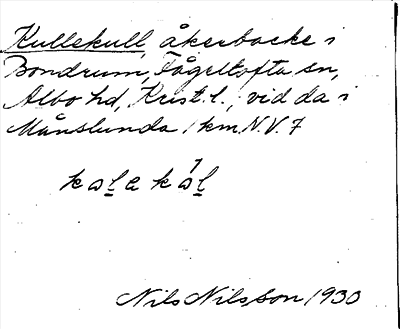 Kullekull, åkerbacke i
Bondrum, Fågeltofta sn,
Albo hd, Krist. l., vid da i
Månslunda 1 km N.V. F
Nils Nilsson 1930